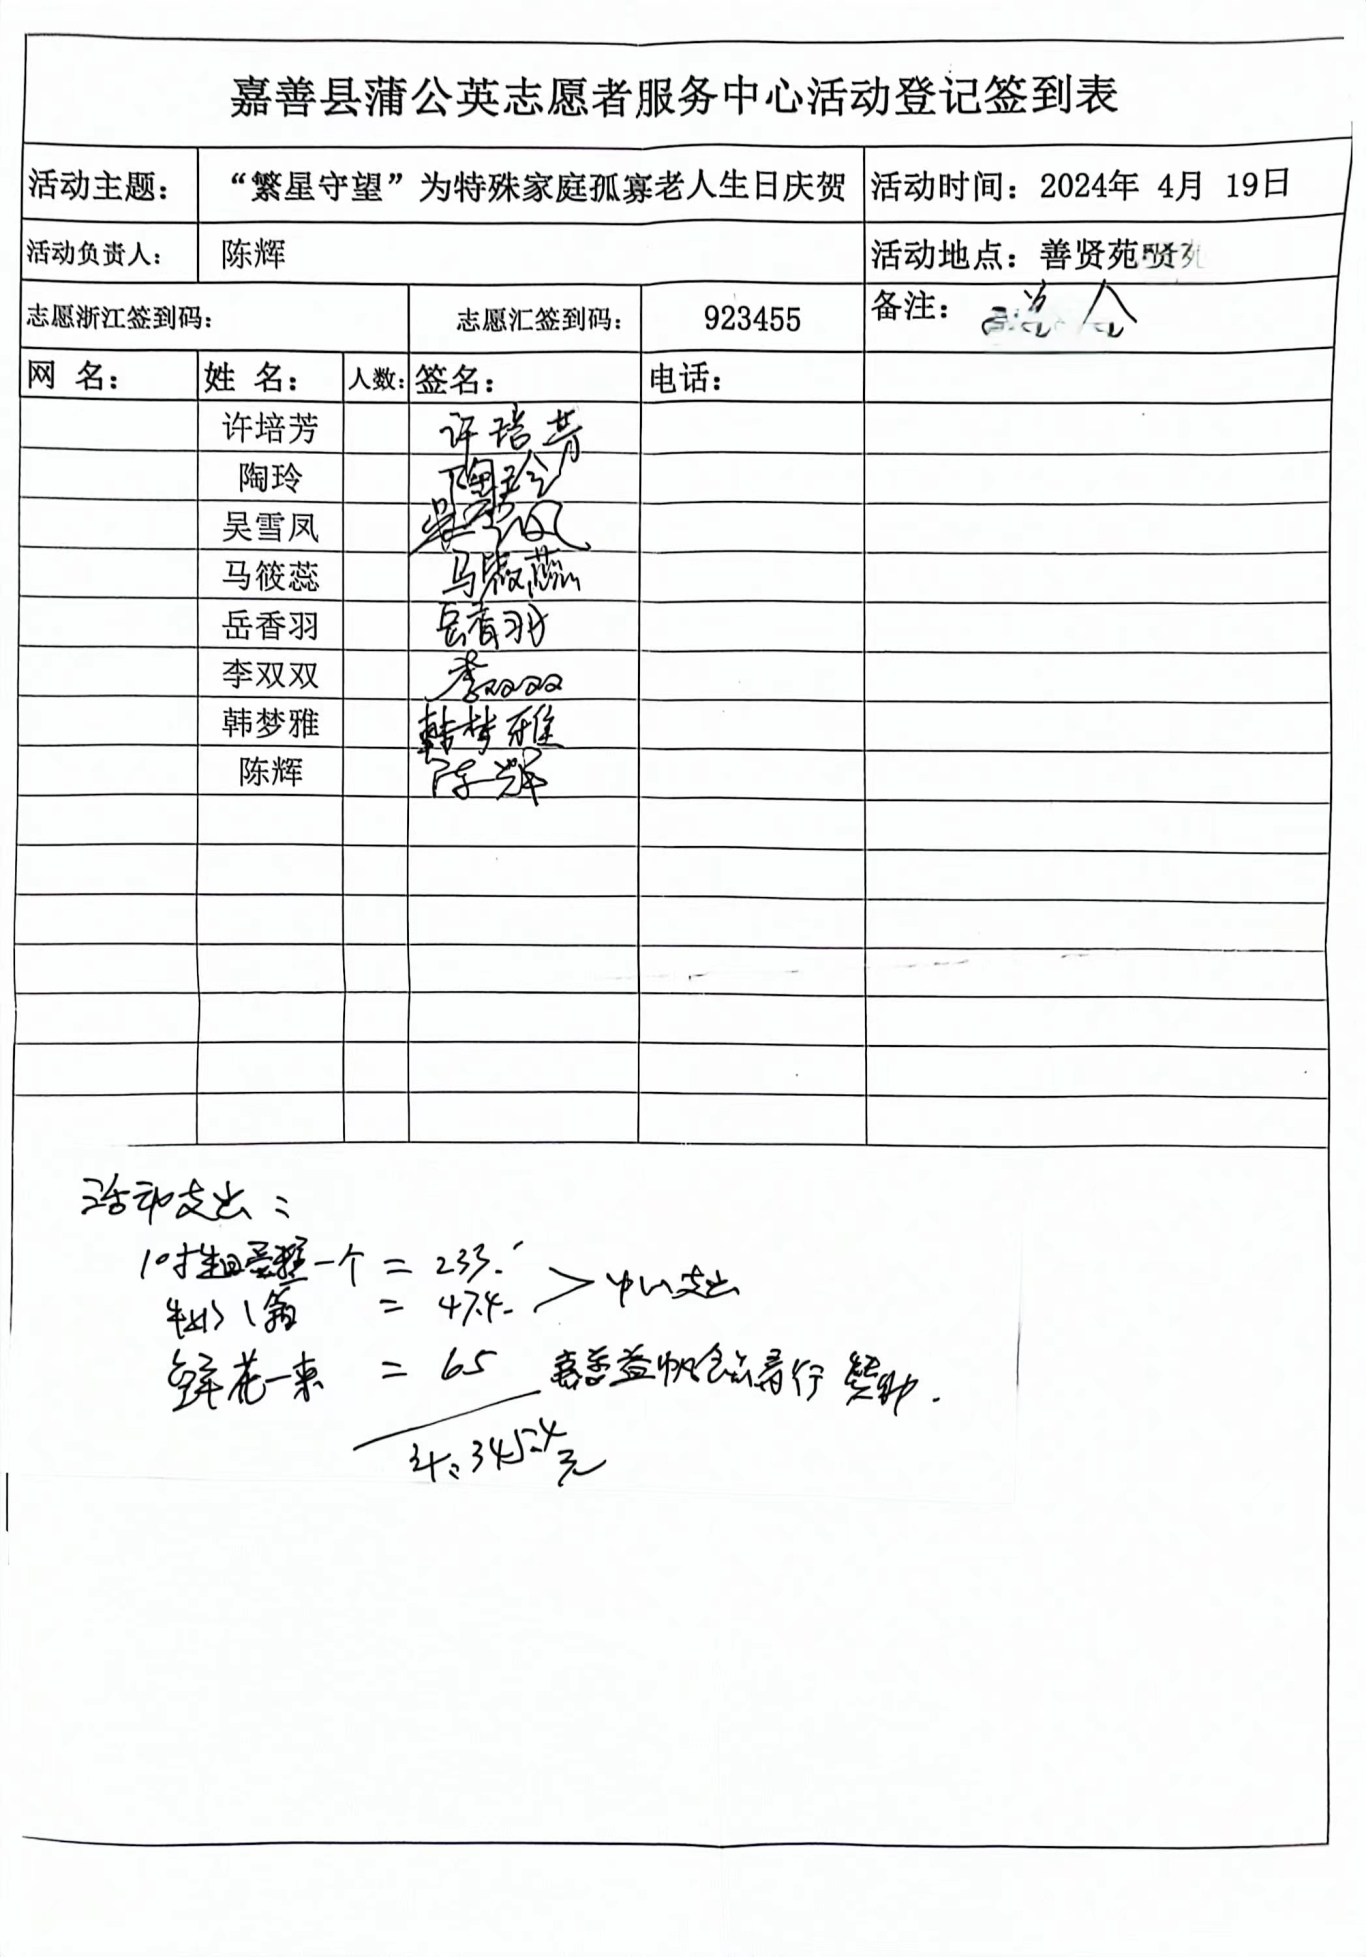 嘉善县蒲公英志愿者服务中心活动登记签到表
活动主题： “繁星守望”为特殊家庭孤寡老人生日庆贺 活动时间：2024年 4月 19日
活动负责人： 陈辉 活动地点：善贤苑
志愿浙江签到码： 志愿汇签到码： 923455 备注：
网 名： 姓 名： 人数： 签名： 电话：
许培芳 许培芳
陶玲 陶玲
吴雪凤 吴雪凤
马筱蕊 马筱蕊
岳香羽 岳香羽
李双双 李双双
韩梦雅 韩梦雅
陈辉 陈辉
活动支出：
10寸生日蛋糕一个 = 233.
牛奶1箱 = 47.4. > 中心支出
鲜花一束 = 65 嘉善益 赞助.
345.4元